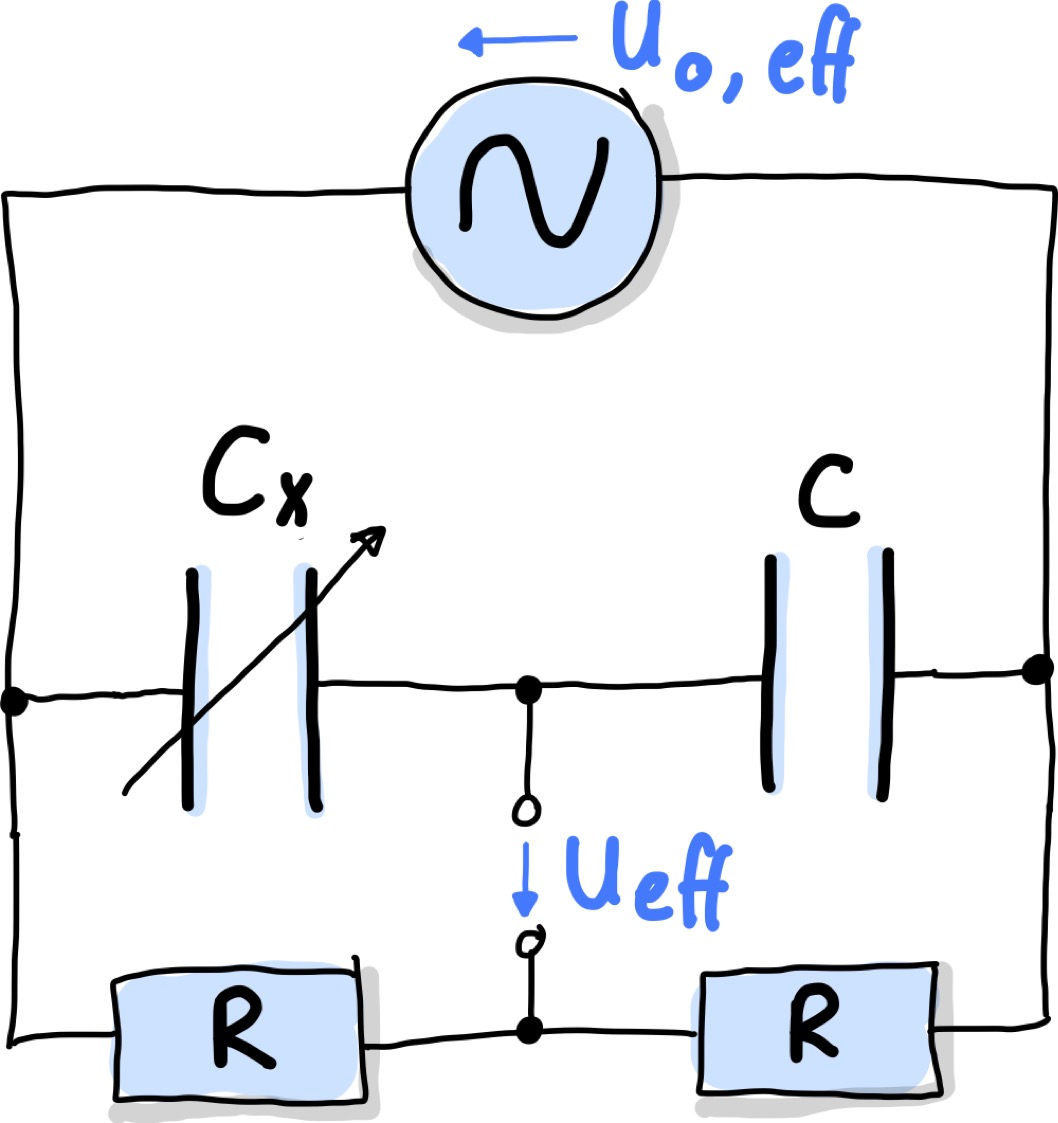 U₀,eff
Cₓ
C
Ueff
R
R